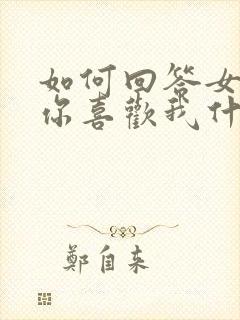 如何回答女
你喜歡我什
鄭自来